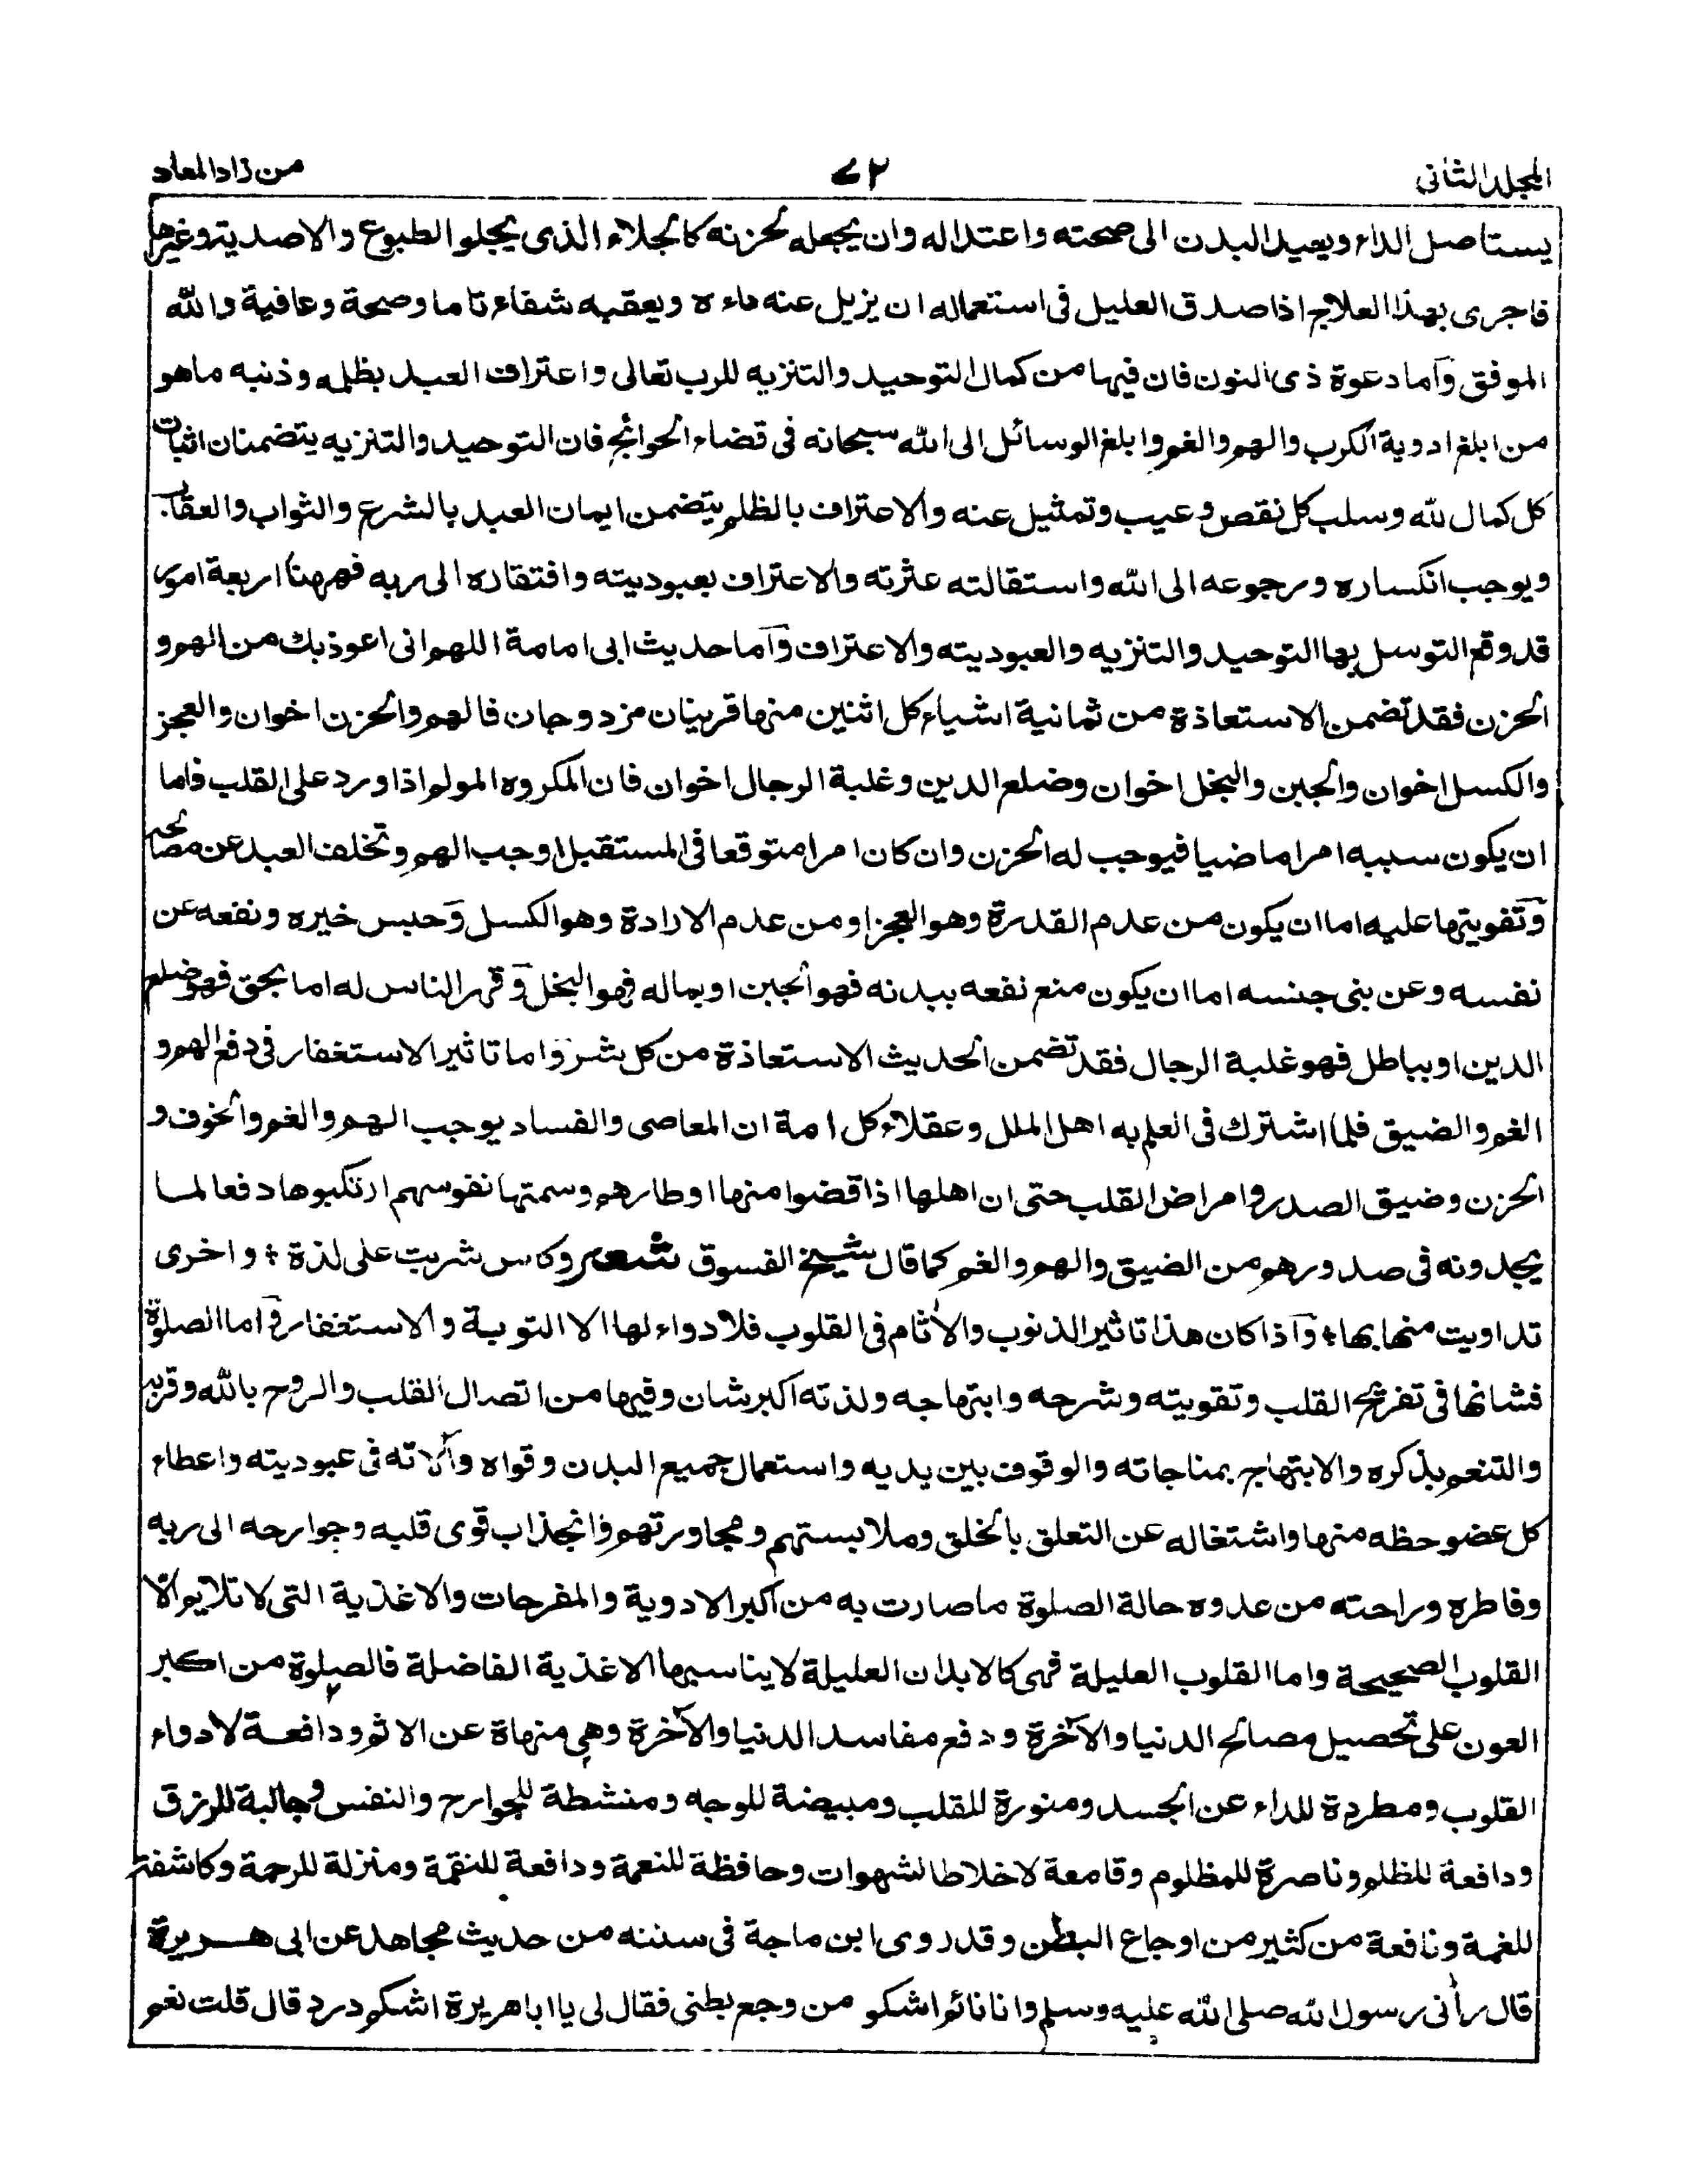 المجلد الثانى
٧٢
من زاد المعاد
يستاصل الداء ويعيد البدن الى صحته واعتداله وان يجعله لحزنه كالجلاء الذى يجلو الطبوع والاصدية وغيرها
فاحرى بهذا العلاج اذا صدق العليل فى استعماله ان يزيل عنه داءه ويعقبه شفاء تاما وصحة وعافية والله
الموفق وآما دعوة ذى النون فان فيها من كمال التوحيد والتنزيه للرب تعالى واعتراف العبد بظلمه وذنبه ماهو
من ابلغ ادوية الكرب والهم والغم وابلغ الوسائل الى الله سبحانه فى قضاء الحوائج فان التوحيد والتنزيه يتضمنان اثبات
كل كمال لله وسلب كل نقص وعيب وتمثيل عنه والاعتراف بالظلم يتضمن ايمان العبد بالشرع والثواب والعقاب
ويوجب انكساره ورجوعه الى الله واستقالته عثرته والاعتراف بعبوديته وافتقاره الى ربه فههنا اربعة امور
قد وقع التوسل بها التوحيد والتنزيه والعبوديته والاعتراف وآما حديث ابى امامة اللهم انى اعوذ بك من الهم و
الحزن فقد تضمن الاستعاذة من ثمانية اشياء كل اثنين منها قرينان مزدوجان فالهم والحزن اخوان والعجز
والكسل اخوان والجبن والبخل اخوان وضلع الدين وغلبة الرجال اخوان فان المكروه المولم اذا ورد على القلب فاما
ان يكون سببه امرا ماضيا فيوجب له الحزن وان كان امرا متوقعا فى المستقبل اوجب الهم وتخلف العبد عن مصالحه
وتفويتها عليه اما ان يكون من عدم القدرة وهو العجز او من عدم الارادة وهو الكسل وحبس خيره ونفعه عن
نفسه وعن بنى جنسه اما ان يكون منع نفعه ببدنه فهو الجبن او بماله فهو البخل وقهر الناس له اما بحق فهو ضلع
الدين او بباطل فهو غلبة الرجال فقد تضمن الحديث الاستعاذة من كل شر واما تاثير الاستغفار فى دفع الهم و
الغم والضيق فلما اشترك فى العلم به اهل الملل وعقلاء كل امة ان المعاصى والفساد يوجب الهم والغم والخوف و
الحزن وضيق الصدر وامراض القلب حتى ان اهلها اذا قضوا منها اوطارهم وسمتها نفوسهم ارتكبوها دفعا لما
يجدونه فى صدورهم من الضيق والهم والغم كما قال شيخ الفسوق شعر وكاس شربت على لذة ؛ واخرى
تداويت منها بها ؛ وآذا كان هذا تاثير الذنوب والآثام فى القلوب فلا دواء لها الا التوبة والاستغفار وآما الصلوة
فشانها فى تفريح القلب وتقويته وشرحه وابتهاجه ولذته اكبر شان وفيها من اتصال القلب والروح بالله وقربه
والتنعم بذكره والابتهاج بمناجاته والوقوف بين يديه واستعمال جميع البدن وقواه وآلاته فى عبوديته واعطاء
كل عضو حظه منها واشتغاله عن التعلق بالخلق وملابستهم ومجاورتهم وانجذاب قوى قلبه وجوارحه الى ربه
وفاطره وراحته من عدوه حالة الصلوة ما صارت به من اكبر الادوية والمفرحات والاغذية التى لا تلايم الا
القلوب الصحيحة واما القلوب العليلة فهى كالابدان العليلة لا يناسبها الاغذية الفاضلة فالصلوة من اكبر
العون على تحصيل مصالح الدنيا والآخرة ودفع مفاسد الدنيا والآخرة وهى منهاة عن الاثم ودافعة لادواء
القلوب ومطردة للداء عن الجسد ومنورة للقلب ومبيضة للوجه ومنشطة للجوارح والنفس وجالبة للرزق
ودافعة للظلم وناصرة للمظلوم وقامعة لاخلاط الشهوات وحافظة للنعمة ودافعة للنقمة ومنزلة للرحمة وكاشفة
للغمة ونافعة من كثير من اوجاع البطن وقد روى ابن ماجة فى سننه من حديث مجاهد عن ابى هريرة
قال رأنى رسول الله صلى الله عليه وسلم وانا نائم اشكو من وجع بطنى فقال لى يا ابا هريرة اشكم درد قال قلت نعم